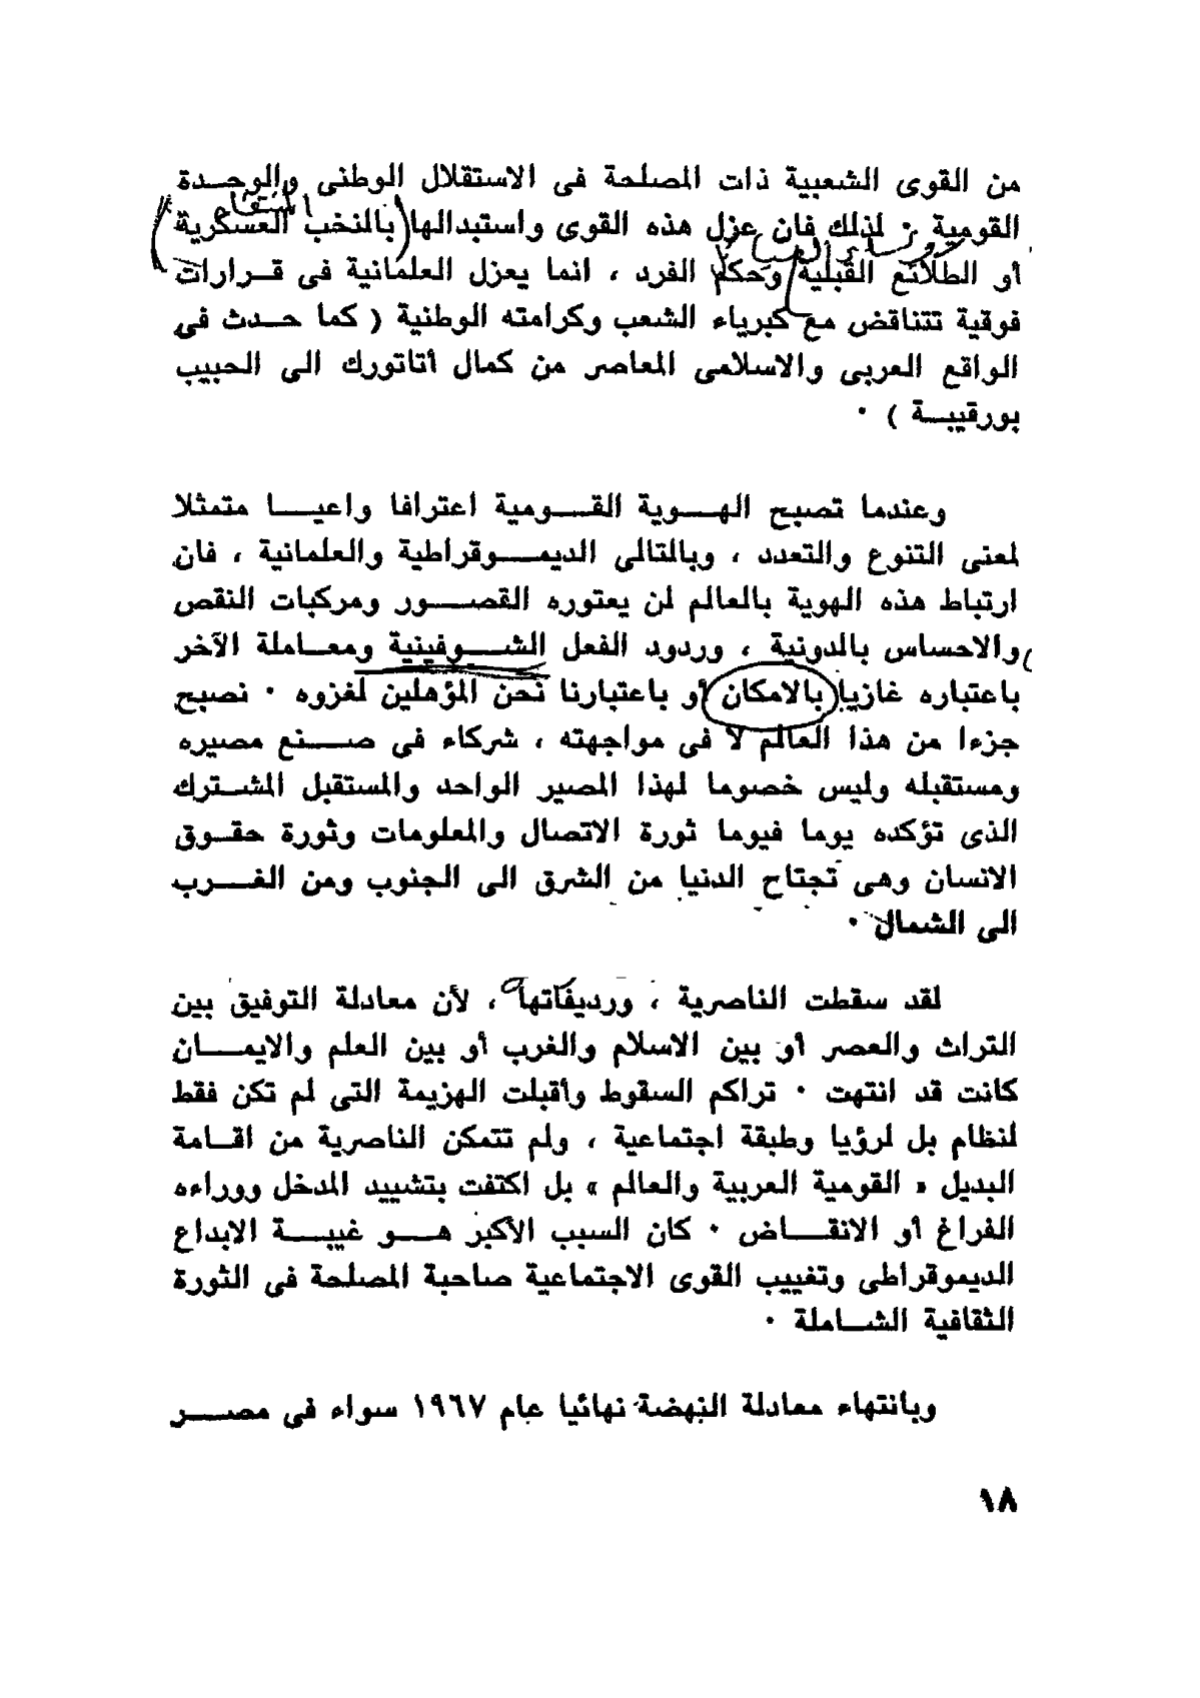 من القوى الشعبية ذات المصلحة فى الاستقلال الوطنى والوحدة
القومية · لذلك فان عزل هذه القوى واستبدالها بالنخب العسكرية
أو الطلائع القبلية وحكم الفرد ، انما يعزل العلمانية فى قرارات
فوقية تتناقض مع كبرياء الشعب وكرامته الوطنية ( كما حدث فى
الواقع العربى والاسلامى المعاصر من كمال أتاتورك الى الحبيب
بورقيبة ) ·
وعندما تصبح الهوية القومية اعترافا واعيا متمثلا
لمعنى التنوع والتعدد ، وبالتالى الديموقراطية والعلمانية ، فان
ارتباط هذه الهوية بالعالم لن يعتوره القصور ومركبات النقص
والاحساس بالدونية ، وردود الفعل الشوفينية ومعاملة الآخر
باعتباره غازيا بالامكان أو باعتبارنا نحن المؤهلين لغزوه · نصبح
جزءا من هذا العالم لا فى مواجهته ، شركاء فى صنع مصيره
ومستقبله وليس خصوما لهذا المصير الواحد والمستقبل المشترك
الذى تؤكده يوما فيوما ثورة الاتصال والمعلومات وثورة حقوق
الانسان وهى تجتاح الدنيا من الشرق الى الجنوب ومن الغرب
الى الشمال ·
لقد سقطت الناصرية ، ورديفاتها ، لأن معادلة التوفيق بين
التراث والعصر أو بين الاسلام والغرب أو بين العلم والايمان
كانت قد انتهت · تراكم السقوط وأقبلت الهزيمة التى لم تكن فقط
لنظام بل لرؤيا وطبقة اجتماعية ، ولم تتمكن الناصرية من اقامة
البديل « القومية العربية والعالم » بل اكتفت بتشييد المدخل ووراءه
الفراغ أو الانقاض · كان السبب الأكبر هو غيبة الابداع
الديموقراطى وتغييب القوى الاجتماعية صاحبة المصلحة فى الثورة
الثقافية الشاملة ·
وبانتهاء معادلة النهضة نهائيا عام ١٩٦٧ سواء فى مصر
١٨